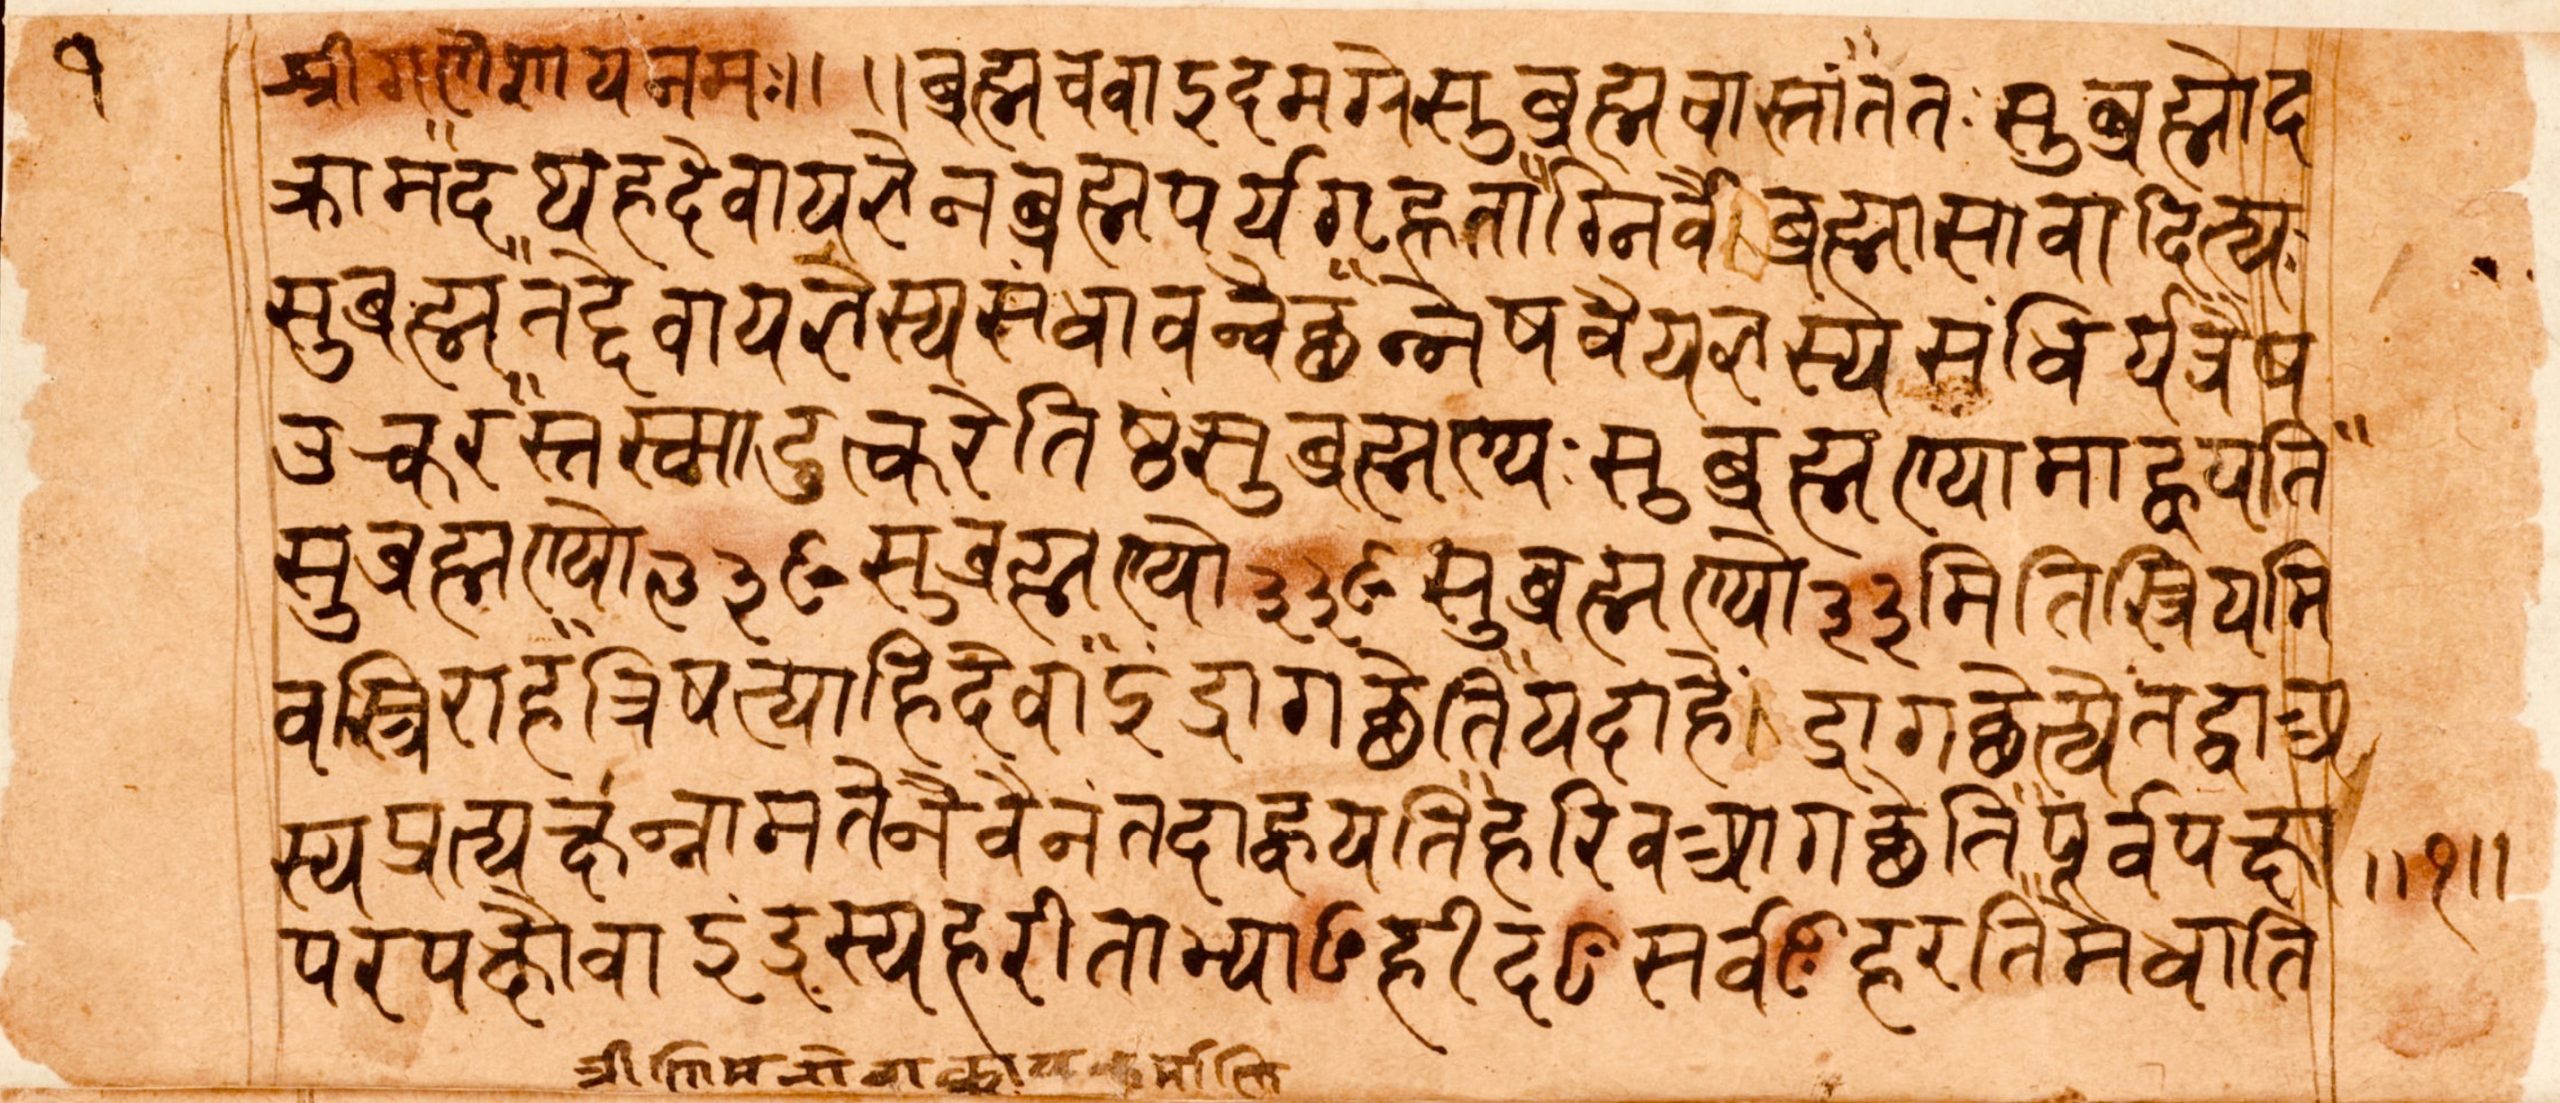 १
श्रीगणेशायनमः॥ ॥ब्रह्मचवाइदमग्रेसुब्रह्मचास्तांततः सुब्रह्मोद
क्रामदथहदेवायज्ञेनब्रह्मपर्यगृह्णताग्निर्वैब्रह्मासावादित्यः
सुब्रह्मतद्देवायज्ञस्यसंधावन्वैछन्नेषवैयज्ञस्यसंधिर्यत्रैष
उत्करस्तस्मादुत्करेतिष्ठंसुब्रह्मण्यः सुब्रह्मण्यामाह्वयति
सुब्रह्मण्यो३३ꣳसुब्रह्मण्यो३३ꣳसुब्रह्मण्यो३३मितिस्त्रियमि
वत्रिराहत्रिषत्याहिदेवाइंद्रागछेतियदाहेंद्रागछेत्येतद्वाअ
स्यप्रत्यक्षंन्नामतेनैवैनंतदाह्वयतिहरिवआगछेतिपूर्वपक्षा
॥१॥
परपक्षौवाइंद्रस्यहरीताभ्याꣳहीदꣳसर्वꣳहरतिमेधाति